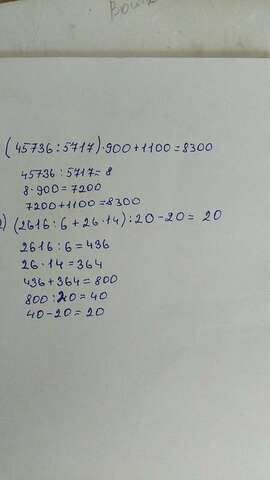 (45736:5717)·900+1100=8300
45736:5717=8
8·900=7200
7200+1100=8300
) (2616:6+26·14):20-20= 20
2616:6=436
26·14=364
436+364=800
800:20=40
40-20=20